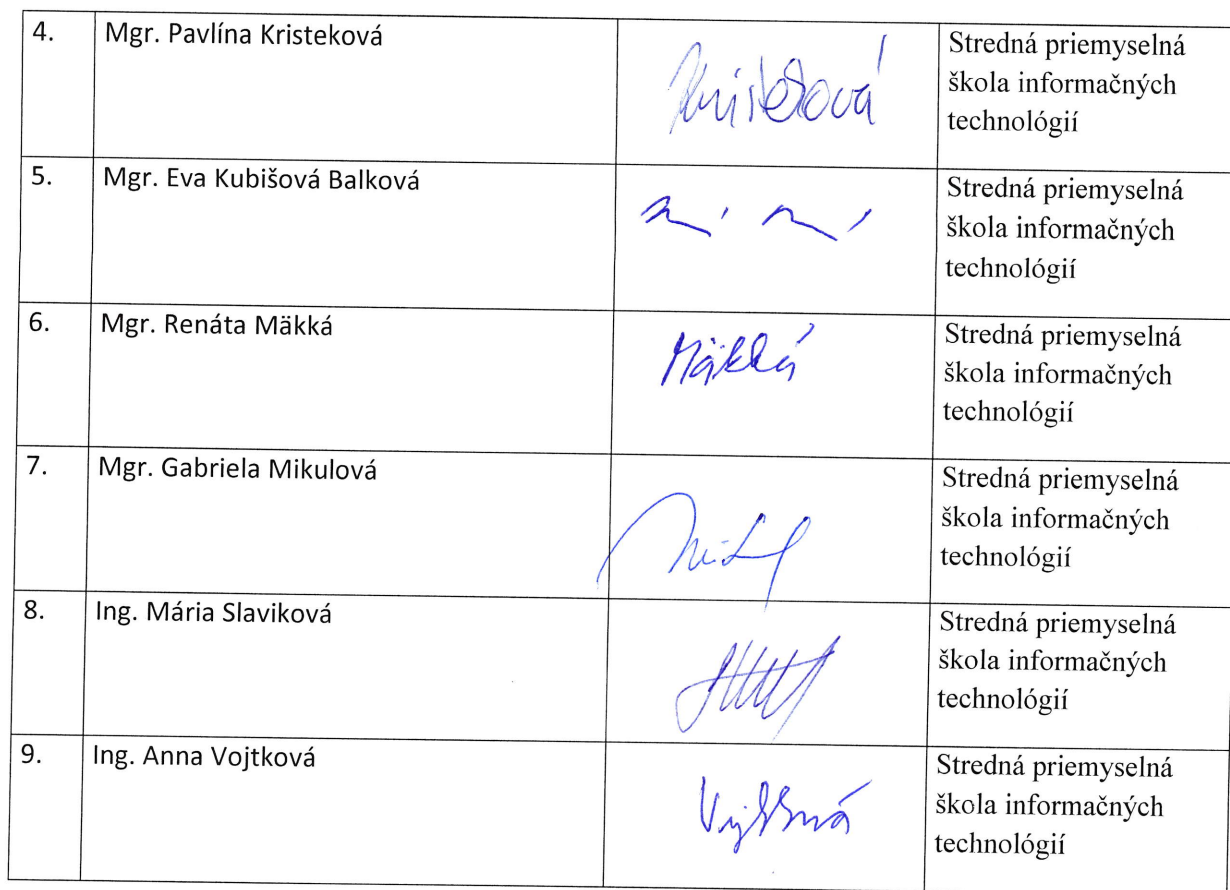 4.
Mgr. Pavlína Kristeková
Kristeková
Stredná priemyselná
škola informačných
technológií
5.
Mgr. Eva Kubišová Balková
Stredná priemyselná
škola informačných
technológií
6.
Mgr. Renáta Mäkká
Mäkká
Stredná priemyselná
škola informačných
technológií
7.
Mgr. Gabriela Mikulová
Stredná priemyselná
škola informačných
technológií
8.
Ing. Mária Slaviková
Stredná priemyselná
škola informačných
technológií
9.
Ing. Anna Vojtková
Stredná priemyselná
škola informačných
technológií